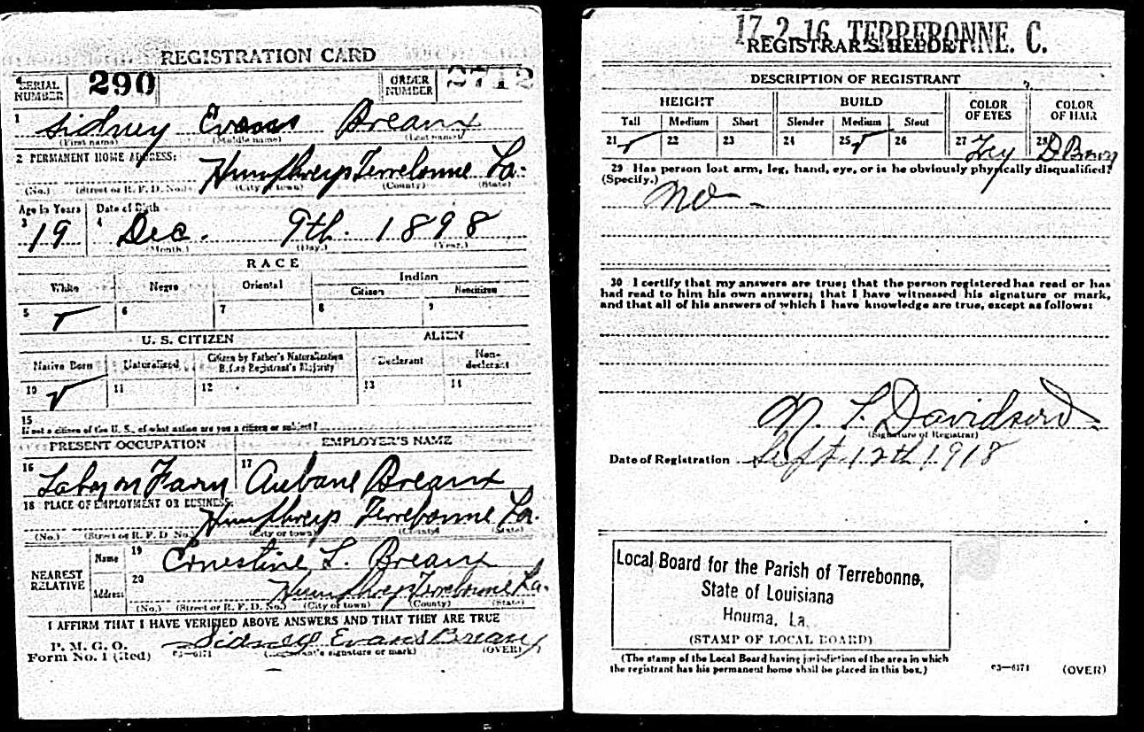 REGISTRATION CARD
SERIAL NUMBER 290 ORDER NUMBER 2712
1 Sidney Evans Breaux
(First name) (Middle name) (Last name)
2 PERMANENT HOME ADDRESS:
Humphreys Terrebonne La.
(No.) (Street or R. F. D. No.) (City or town) (County) (State)
Age in Years Date of Birth
3 19 4 Dec. 9th. 1898
(Month.) (Day.) (Year.)
RACE
White Negro Oriental Indian
Citizen Noncitizen
5 ✓ 6 7 8 9
U. S. CITIZEN ALIEN
Native Born Naturalized Citizen by Father's Naturalization Before Registrant's Majority Declarant Non-declarant
10 ✓ 11 12 13 14
15
If not a citizen of the U. S., of what nation are you a citizen or subject?
PRESENT OCCUPATION EMPLOYER'S NAME
16 Labr on Farm 17 Aubane Breaux
18 PLACE OF EMPLOYMENT OR BUSINESS:
Humphreys Terrebonne La.
(No.) (Street or R. F. D. No.) (City or town) (County) (State)
NEAREST RELATIVE Name 19 Ernestine L. Breaux
Address 20 Humphreys Terrebonne La.
(No.) (Street or R. F. D. No.) (City or town) (County) (State)
I AFFIRM THAT I HAVE VERIFIED ABOVE ANSWERS AND THAT THEY ARE TRUE
P. M. G. O.
Form No. 1 (Red) 03—6171 Sidney Evans Breaux
(Registrant's signature or mark) (OVER)
17-2-16 TERREBONNE. C.
REGISTRAR'S REPORT
DESCRIPTION OF REGISTRANT
HEIGHT BUILD COLOR OF EYES COLOR OF HAIR
Tall Medium Short Slender Medium Stout
21 ✓ 22 23 24 25 ✓ 26 27 28 D Brown
29 Has person lost arm, leg, hand, eye, or is he obviously physically disqualified?
(Specify.) No
30 I certify that my answers are true; that the person registered has read or has
had read to him his own answers; that I have witnessed his signature or mark,
and that all of his answers of which I have knowledge are true, except as follows:
Davidson
(Signature of Registrar)
Date of Registration Sept 12th 1918
Local Board for the Parish of Terrebonne,
State of Louisiana
Houma, La.
(STAMP OF LOCAL BOARD)
(The stamp of the Local Board having jurisdiction of the area in which
the registrant has his permanent home shall be placed in this box.)
03—6171 (OVER)